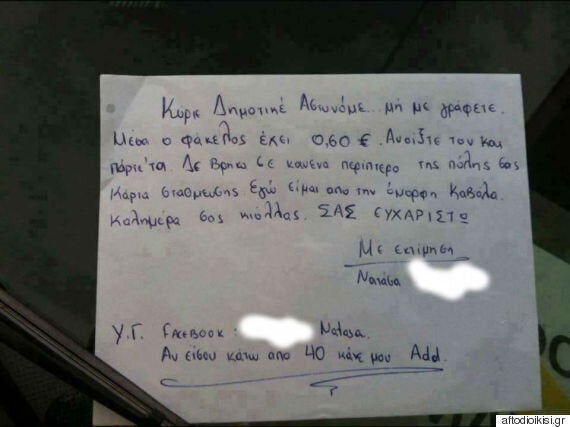 Κύριε Δημοτικέ Αστυνόμε... μή με γράφετε.
Μέσα ο φάκελος έχει 0,60 €. Ανοίξτε τον και
πάρτε'τα. Δε βρηκα σε κανενα περιπτερο της πόλης σας
κάρτα στάθμευσης Εγώ είμαι απο την όμορφη Καβάλα.
Καλημέρα σας κιόλλας. ΣΑΣ ΕΥΧΑΡΙΣΤΩ
Με εκτίμηση
Νατάσα
Υ.Γ. FACEBOOK: Natasa.
Αν είσαι κάτω απο 40 κάνε μου Add.
aftodioikisi.gr